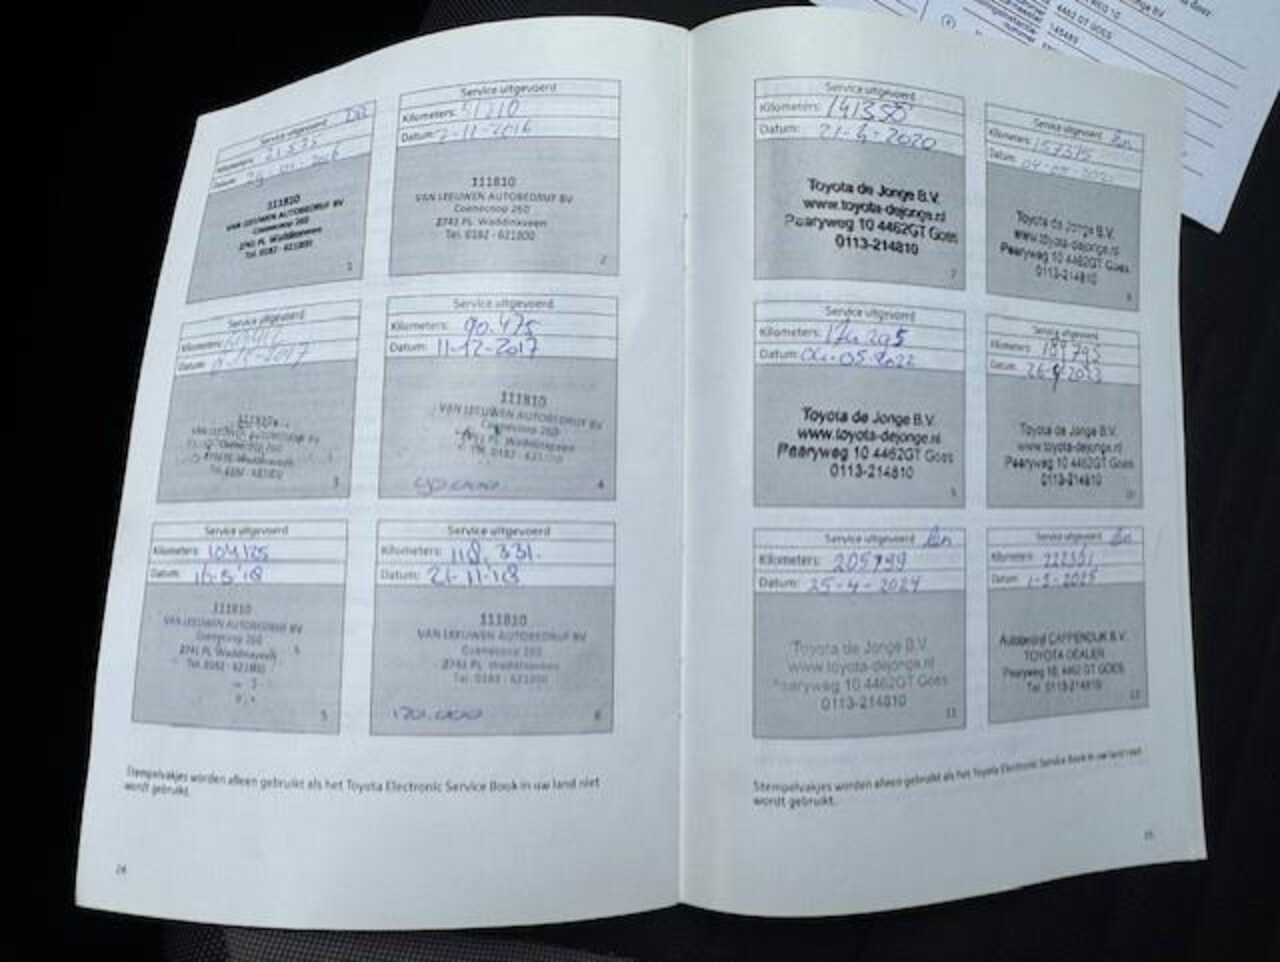 Service uitgevoerd
Kilometers:
Datum:
111810
VAN LEEUWEN AUTOBEDRIJF BV
Coenecoop 260
2741 PL Waddinxveen
Tel. 0182 - 621800
1
Service uitgevoerd
Kilometers:
Datum: 2-11-2016
111810
VAN LEEUWEN AUTOBEDRIJF BV
Coenecoop 260
2741 PL Waddinxveen
Tel. 0182 - 621800
2
Service uitgevoerd
Kilometers:
Datum:
111810
3
Service uitgevoerd
Kilometers: 90.475
Datum: 11-12-2017
111810
VAN LEEUWEN AUTOBEDRIJF BV
Coenecoop 260
2741 PL Waddinxveen
Tel. 0182 - 621800
90.000
4
Service uitgevoerd
Kilometers: 104125
Datum: 16-5-18
111810
VAN LEEUWEN AUTOBEDRIJF BV
Coenecoop 260
2741 PL Waddinxveen
Tel. 0182 - 621800
5
Service uitgevoerd
Kilometers: 118,331.
Datum: 21-11-18
111810
VAN LEEUWEN AUTOBEDRIJF BV
Coenecoop 260
2741 PL Waddinxveen
Tel. 0182 - 621800
120.000
6
Stempelvakjes worden alleen gebruikt als het Toyota Electronic Service Book in uw land niet
wordt gebruikt.
24
Service uitgevoerd
Kilometers: 141350
Datum: 21-4-2020
Toyota de Jonge B.V.
www.toyota-dejonge.nl
Paaryweg 10 4462GT Goes
0113-214810
7
Service uitgevoerd
Kilometers: 157375
Datum:
Toyota de Jonge B.V.
www.toyota-dejonge.nl
Pearyweg 10 4462GT Goes
0113-214810
8
Service uitgevoerd
Kilometers: 174295
Datum: 04-05-2022
Toyota de Jonge B.V.
www.toyota-dejonge.nl
Pearyweg 10 4462GT Goes
0113-214810
9
Service uitgevoerd
Kilometers:
Datum: 26-4-2023
Toyota de Jonge B.V.
www.toyota-dejonge.nl
Pearyweg 10 4462GT Goes
0113-214810
10
Service uitgevoerd
Kilometers: 205799
Datum: 25-4-2024
Toyota de Jonge B.V.
www.toyota-dejonge.nl
Pearyweg 10 4462GT Goes
0113-214810
11
Service uitgevoerd
Kilometers:
Datum: 1-5-2025
Autobedrijf CAPPENDIJK B.V.
TOYOTA DEALER
Pearyweg 10, 4462 GT GOES
Tel. 0113-214810
12
Stempelvakjes worden alleen gebruikt als het Toyota Electronic Service Book in uw land niet
wordt gebruikt.
25
4462 GT GOES